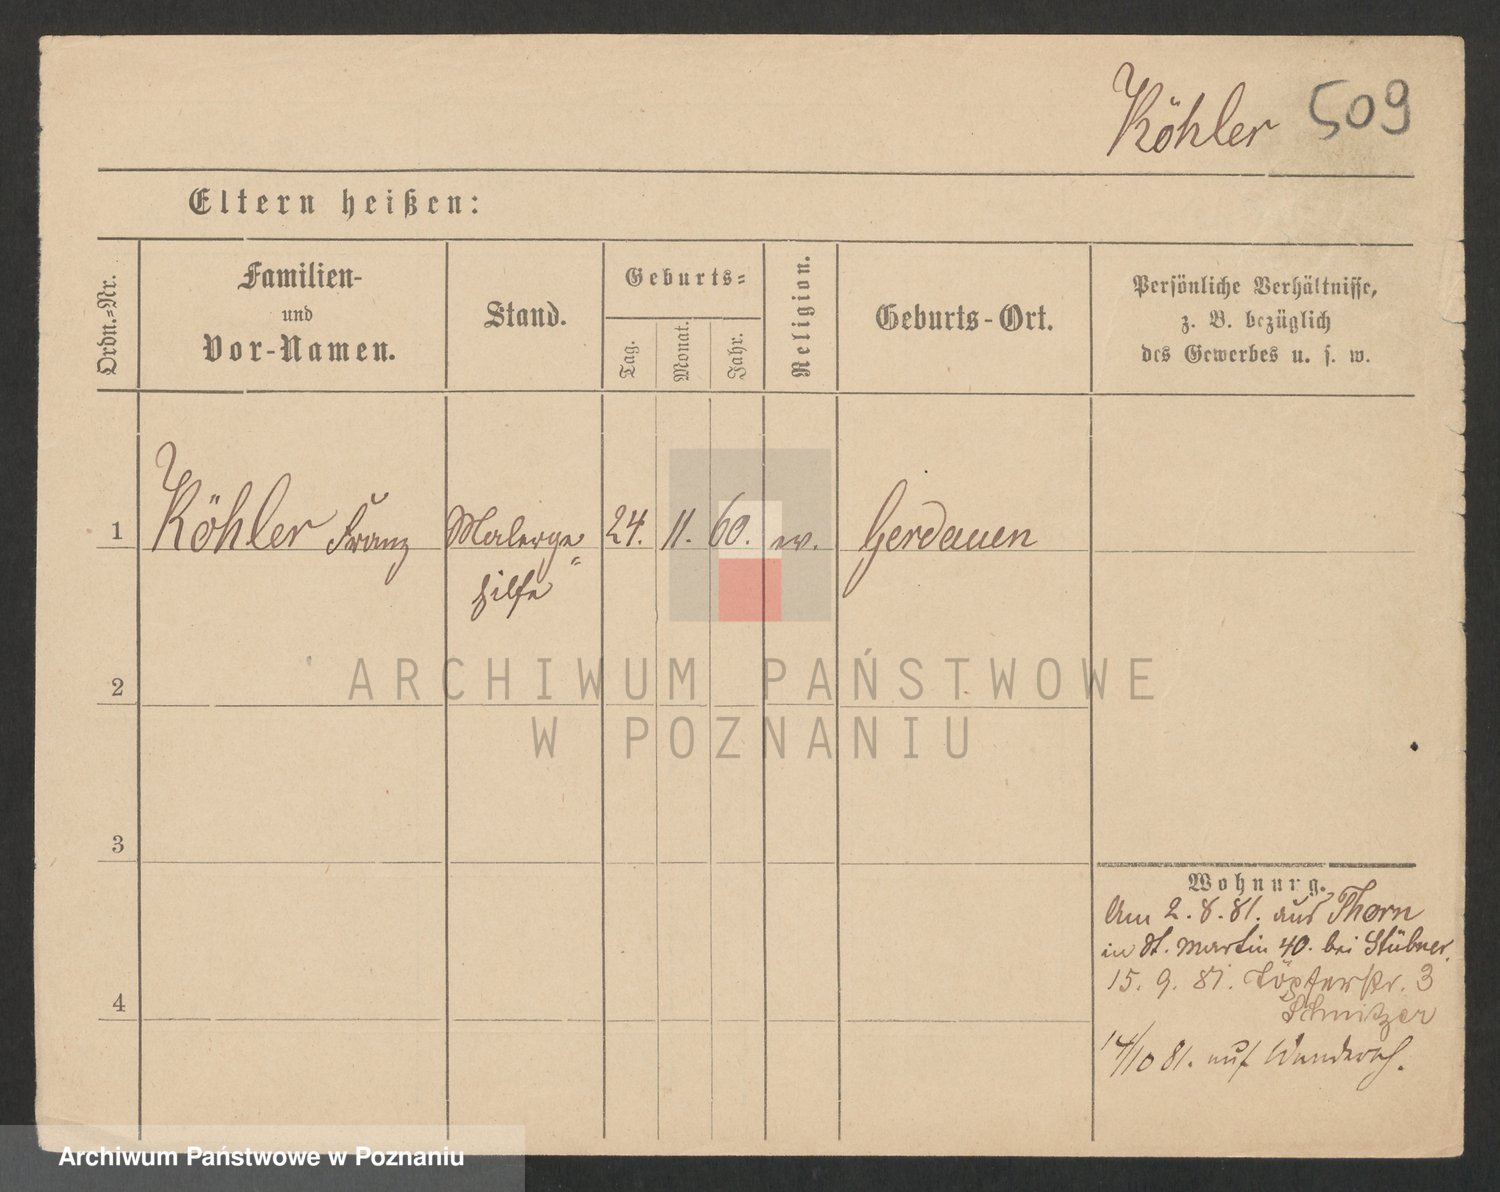 Köhler 509
Eltern heißen:
Ordn.=Nr.
Familien-
und
Vor-Namen.
Stand.
Geburts=
Tag.
Monat.
Jahr.
Religion.
Geburts-Ort.
Persönliche Verhältnisse,
z. B. bezüglich
des Gewerbes u. s. w.
1 Köhler Franz Malerge= 24. 11. 60. ev. Gerdauen
hilfe
2
ARCHIWUM PAŃSTWOWE
W POZNANIU
3
Wohnung.
Am 2. 8. 81. aus Thorn
in St. Martin 40. bei Stübner.
15. 9. 81. Töpferstr. 3
Schnitzer
4
14/10 81. auf Wandersch.
Archiwum Państwowe w Poznaniu